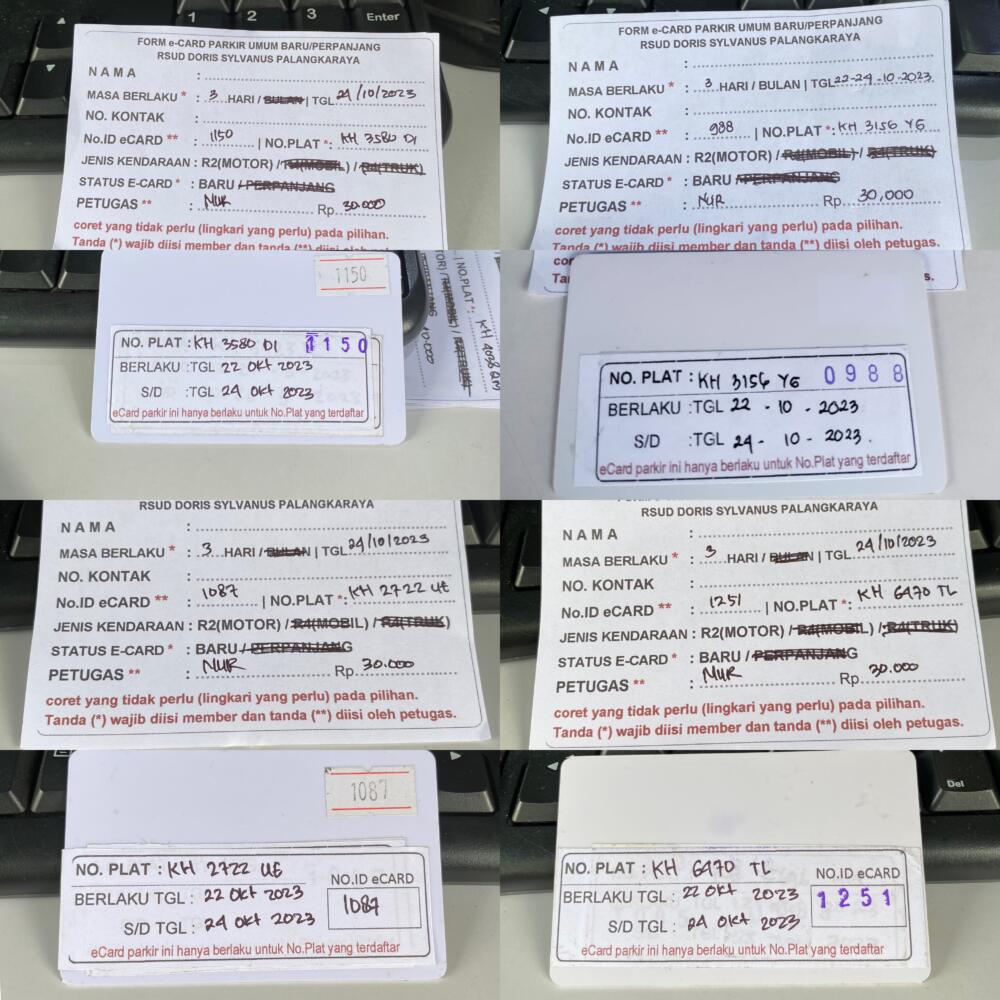 1 2 3 Enter
FORM e-CARD PARKIR UMUM BARU/PERPANJANG
RSUD DORIS SYLVANUS PALANGKARAYA
NAMA :
MASA BERLAKU * : 3 HARI / BULAN | TGL 24/10/2023
NO. KONTAK :
No.ID eCARD ** : 1150 | NO.PLAT *: KH 3580 DI
JENIS KENDARAAN : R2(MOTOR) / R4(MOBIL) / R4(TRUK)
STATUS E-CARD * : BARU / PERPANJANG
PETUGAS ** : NUR Rp. 30.000
coret yang tidak perlu (lingkari yang perlu) pada pilihan.
Tanda (*) wajib diisi member dan tanda (**) diisi oleh petugas.
FORM e-CARD PARKIR UMUM BARU/PERPANJANG
RSUD DORIS SYLVANUS PALANGKARAYA
NAMA :
MASA BERLAKU * : 3 HARI / BULAN | TGL 22-24-10-2023
NO. KONTAK :
No.ID eCARD ** : 988 | NO.PLAT *: KH 3156 YG
JENIS KENDARAAN : R2(MOTOR) / R4(MOBIL) / R4(TRUK)
STATUS E-CARD * : BARU / PERPANJANG
PETUGAS ** : NUR Rp. 30,000
coret yang tidak perlu (lingkari yang perlu) pada pilihan.
Tanda (*) wajib diisi member dan tanda (**) diisi oleh petugas.
1150
NO. PLAT : KH 3580 DI 1150
BERLAKU :TGL 22 Okt 2023
S/D :TGL 24 Okt 2023
eCard parkir ini hanya berlaku untuk No.Plat yang terdaftar
NO.PLAT *: KH 4038 QM
NO. PLAT : KH 3156 YG 0988
BERLAKU :TGL 22 - 10 - 2023
S/D :TGL 24 - 10 - 2023.
eCard parkir ini hanya berlaku untuk No.Plat yang terdaftar
RSUD DORIS SYLVANUS PALANGKARAYA
NAMA :
MASA BERLAKU * : 3 HARI / BULAN | TGL 24/10/2023
NO. KONTAK :
No.ID eCARD ** : 1087 | NO.PLAT *: KH 2722 UE
JENIS KENDARAAN : R2(MOTOR) / R4(MOBIL) / R4(TRUK)
STATUS E-CARD * : BARU / PERPANJANG
PETUGAS ** : NUR Rp. 30.000
coret yang tidak perlu (lingkari yang perlu) pada pilihan.
Tanda (*) wajib diisi member dan tanda (**) diisi oleh petugas.
RSUD DORIS SYLVANUS PALANGKARAYA
NAMA :
MASA BERLAKU * : 3 HARI / BULAN | TGL 24/10/2023
NO. KONTAK :
No.ID eCARD ** : 1251 | NO.PLAT *: KH 6470 TL
JENIS KENDARAAN : R2(MOTOR) / R4(MOBIL) / R4(TRUK)
STATUS E-CARD * : BARU / PERPANJANG
PETUGAS ** : NUR Rp. 30.000
coret yang tidak perlu (lingkari yang perlu) pada pilihan.
Tanda (*) wajib diisi member dan tanda (**) diisi oleh petugas.
1087
NO. PLAT : KH 2722 UE
NO.ID eCARD
BERLAKU TGL : 22 Okt 2023
1087
S/D TGL : 24 Okt 2023
eCard parkir ini hanya berlaku untuk No.Plat yang terdaftar
Del
NO. PLAT : KH 6470 TL
NO.ID eCARD
BERLAKU TGL : 22 Okt 2023
1251
S/D TGL : 24 Okt 2023
eCard parkir ini hanya berlaku untuk No.Plat yang terdaftar